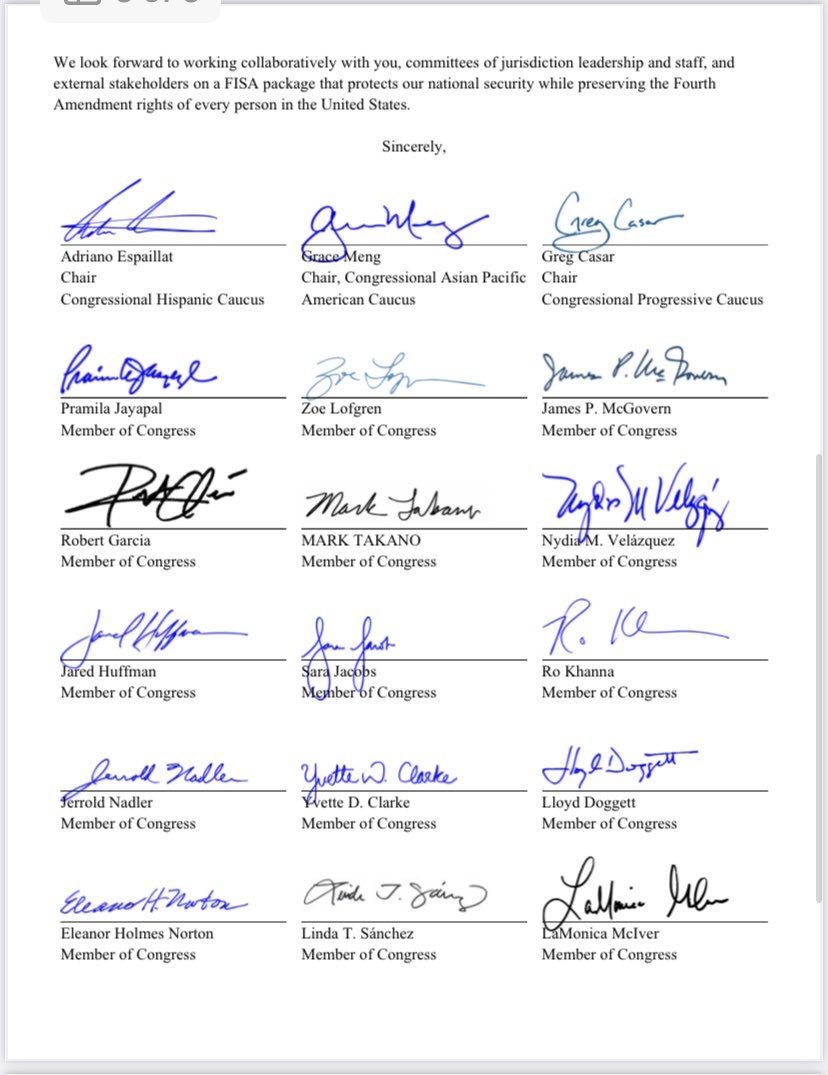 We look forward to working collaboratively with you, committees of jurisdiction leadership and staff, and
external stakeholders on a FISA package that protects our national security while preserving the Fourth
Amendment rights of every person in the United States.
Sincerely,
Adriano Espaillat
Chair
Congressional Hispanic Caucus
Grace Meng
Chair, Congressional Asian Pacific
American Caucus
Greg Casar
Greg Casar
Chair
Congressional Progressive Caucus
Pramila Jayapal
Member of Congress
Zoe Lofgren
Member of Congress
James P. McGovern
James P. McGovern
Member of Congress
Robert Garcia
Member of Congress
Mark Takano
MARK TAKANO
Member of Congress
Nydia M. Velázquez
Member of Congress
Jared Huffman
Jared Huffman
Member of Congress
Sara Jacobs
Member of Congress
Ro Khanna
Member of Congress
Jerrold Nadler
Jerrold Nadler
Member of Congress
Yvette D. Clarke
Yvette D. Clarke
Member of Congress
Lloyd Doggett
Lloyd Doggett
Member of Congress
Eleanor H. Norton
Eleanor Holmes Norton
Member of Congress
Linda T. Sánchez
Linda T. Sánchez
Member of Congress
LaMonica McIver
Member of Congress